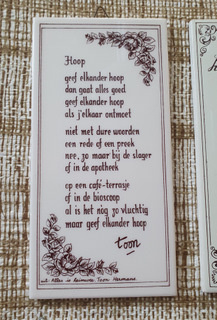 Hoop
geef elkander hoop
dan gaat alles goed
geef elkander hoop
als j'elkaar ontmoet
niet met dure woorden
een rede of een preek
nee, zo maar bij de slager
of in de apotheek
op een café-terrasje
of in de bioscoop
al is het nog zo vluchtig
maar geef elkander hoop
toon
uit: Alles is Toon Hermans